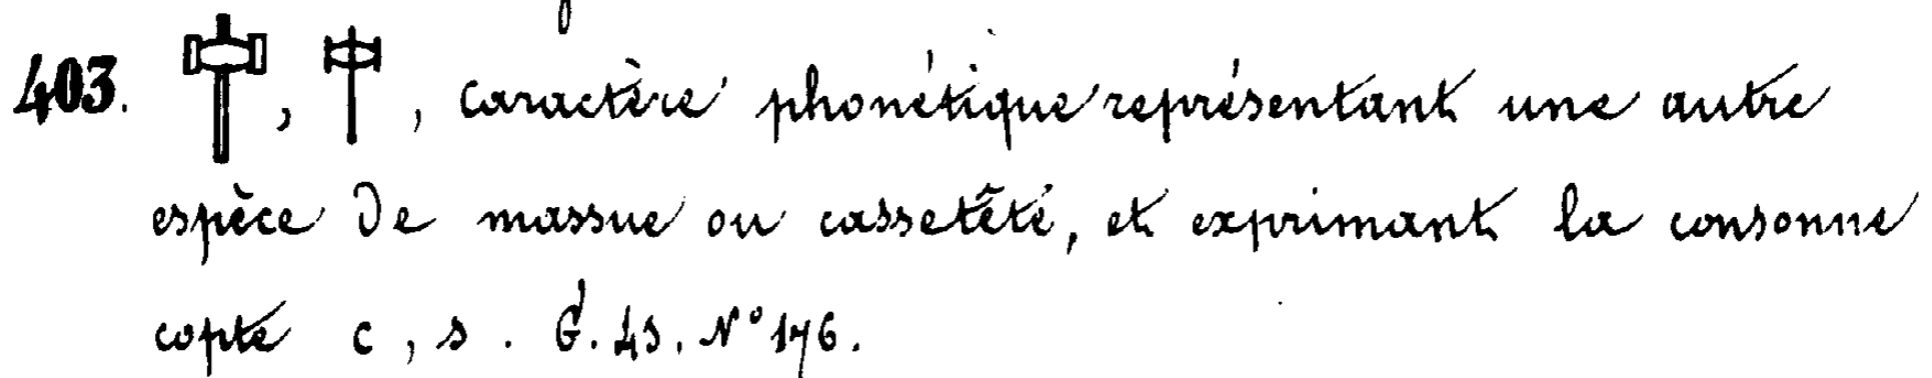 403. , , caractère phonétique représentant une autre
espèce de massue ou cassetête, et exprimant la consonne
copte c, s. G. 43. N° 176.